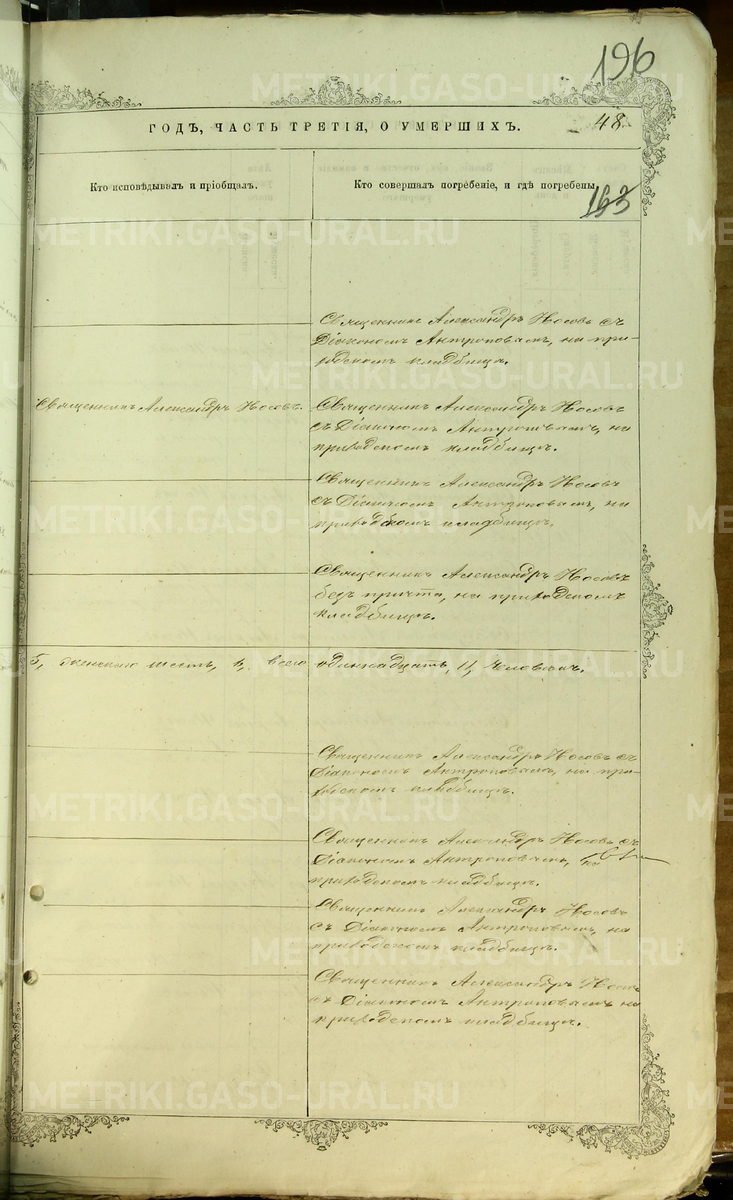 196
ГОДЪ, ЧАСТЬ ТРЕТІЯ, О УМЕРШИХЪ.
48.
Кто исповѣдывалъ и пріобщалъ.
Кто совершалъ погребеніе, и гдѣ погребены.
163
Священникъ Александръ Носовъ съ
Діакономъ Антроповымъ, на при-
ходскомъ кладбищѣ.
Священникъ Александръ Носовъ.
Священникъ Александръ Носовъ
съ Діакономъ Антроповымъ, на
приходскомъ кладбищѣ.
Священникъ Александръ Носовъ
съ Діакономъ Антроповымъ, на
приходскомъ кладбищѣ.
Священникъ Александръ Носовъ
безъ причта, на приходскомъ
кладбищѣ.
5, женскаго шесть, 6, всего одинадцать, 11, человѣкъ.
Священникъ Александръ Носовъ съ
Діакономъ Антроповымъ, на при-
ходскомъ кладбищѣ.
Священникъ Александръ Носовъ съ
Діакономъ Антроповымъ, на
приходскомъ кладбищѣ.
Священникъ Александръ Носовъ
съ Діакономъ Антроповымъ, на
приходскомъ кладбищѣ.
Священникъ Александръ Носовъ
съ Діакономъ Антроповымъ на
приходскомъ кладбищѣ.
METRIKI.GASO-URAL.RU